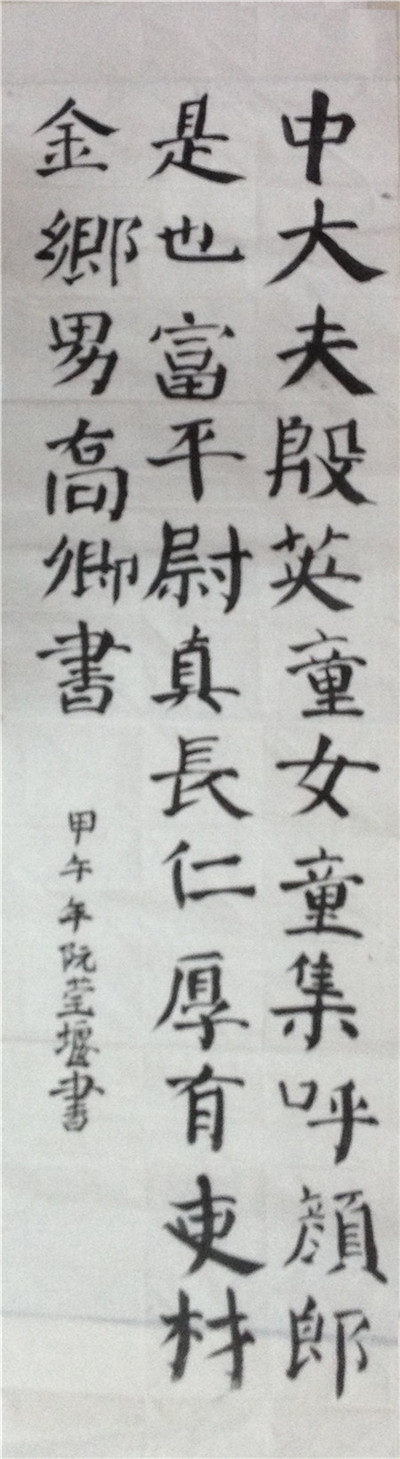 中大夫殷英童女童集呼顔郎
是也富平尉真長仁厚有吏材
金鄉男喬卿書
甲午年阮莹堰書